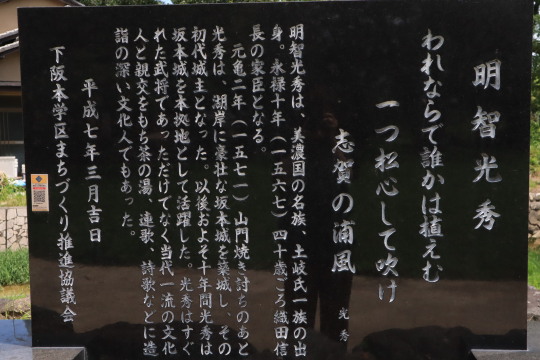 明智光秀
われならで誰かは植えむ
一つ松心して吹け
志賀の浦風
光秀
明智光秀は、美濃国の名族、土岐氏一族の出
身。永禄十年（一五六七）四十歳ごろ織田信
長の家臣となる。
元亀二年（一五七一）山門焼き討ちのあと
光秀は、湖岸に豪壮な坂本城を築城し、その
初代城主となった。以後およそ十年間光秀は
坂本城を本拠地として活躍した。光秀はすぐ
れた武将であっただけでなく当代一流の文化
人と親交をもち茶の湯、連歌、詩歌などに造
詣の深い文化人でもあった。
平成七年三月吉日
下阪本学区まちづくり推進協議会